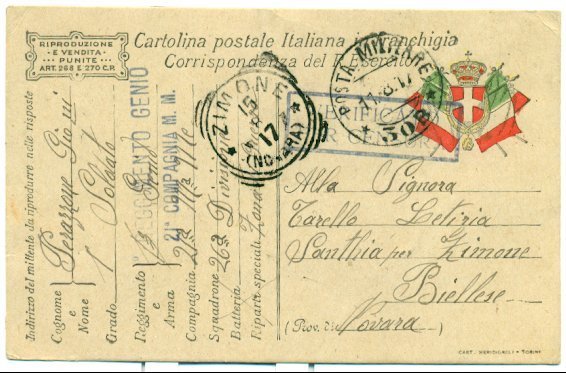 RIPRODUZIONE
E VENDITA
PUNITE
ART. 268 E 270 C.P.
Cartolina postale Italiana in franchigia
Corrispondenza del R. Esercito
Indirizzo del mittente da riprodurre nelle risposte
Cognome
e
Nome
Grado Soldato
Reggimento
e
Arma
Compagnia
Squadrone 26a Divis
Batteria
Riparti speciali Zona
GGIMENTO GENIO
21a COMPAGNIA M. M.
ZIMONE
15
17
(NOVARA)
POSTA MILITARE
11.8.17
30B
VERIFICA
CENSURA
Alla Signora
Tarello Letizia
Santhià per Zimone
Biellese
(Prov. di Novara)
CART. MERIDIGNALI - TORINO